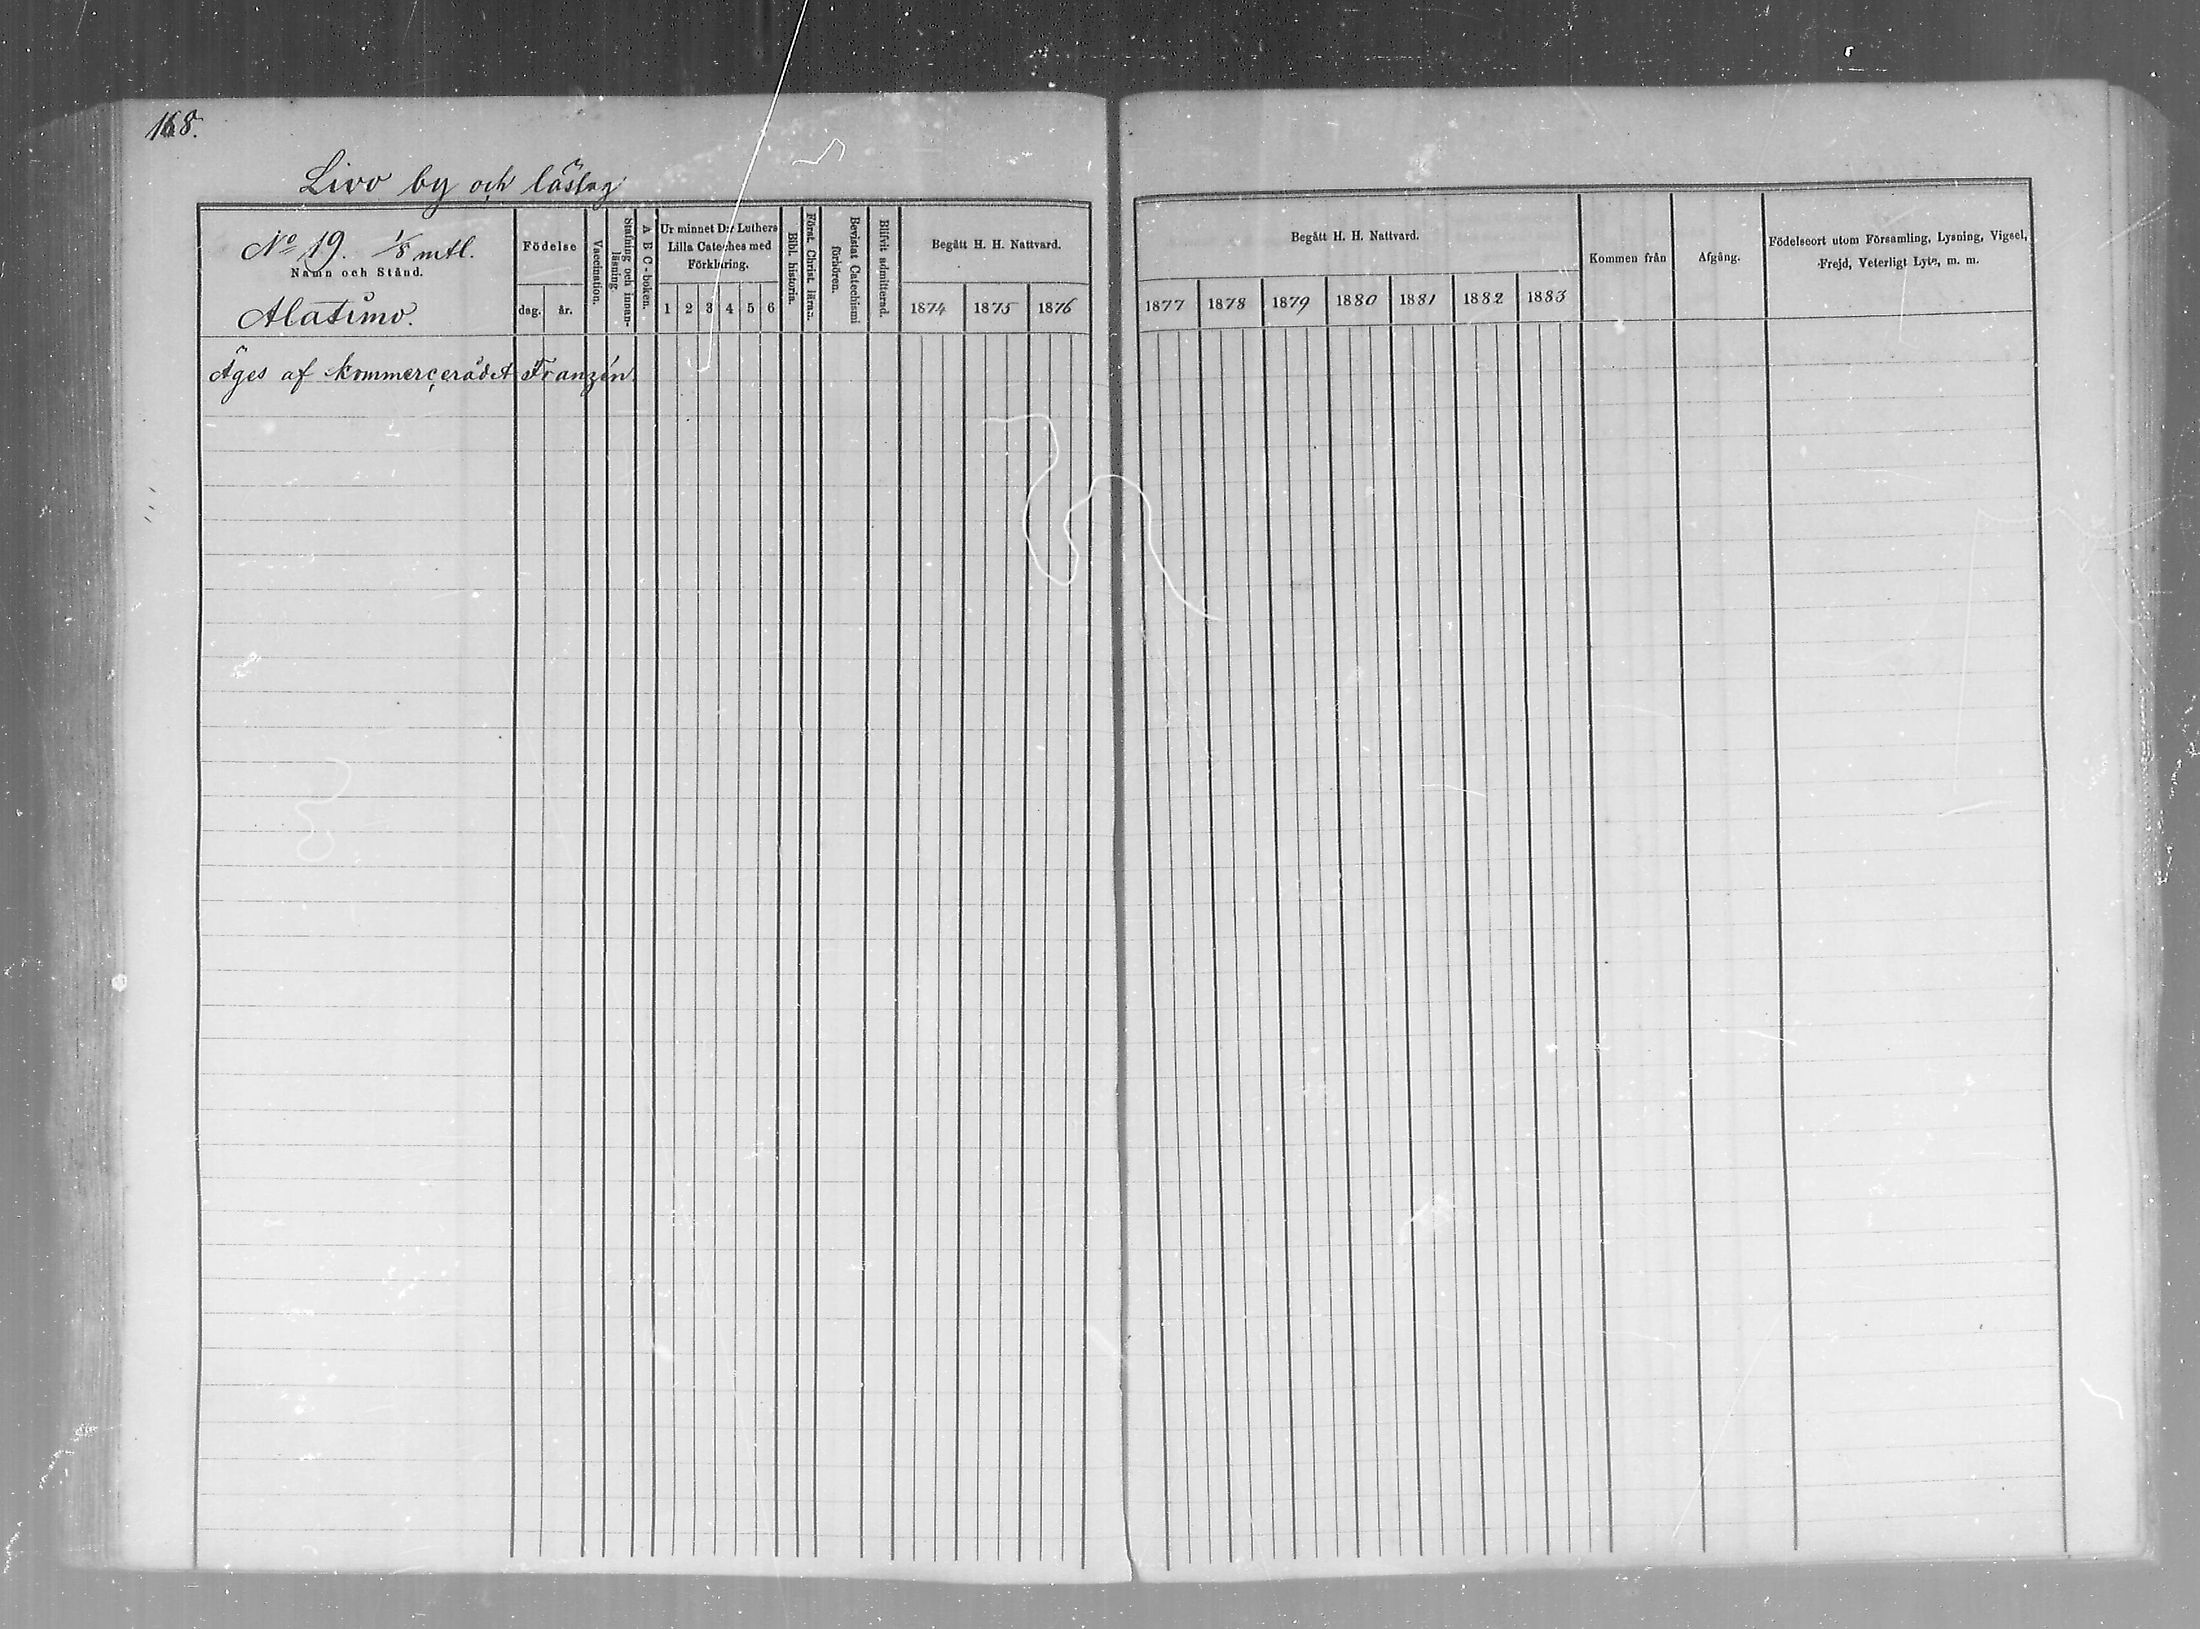 168.
Livo by och läslag
No 19. 1/8 mtl.
Namn och Stånd.
Alasimo.
Födelse
dag. år.
Vaccination.
Stafning och innan-
läsning.
A B C-boken.
Ur minnet D:r Luthers
Lilla Cateches med
Förklaring.
1 2 3 4 5 6
Bibl. historia.
Först. Christ. läran.
Bevistat Catechismi
förhören.
Blifvit admitterad.
Begått H. H. Nattvard.
1874 1875 1876
Äges af kommerçerådet Franzén.
Begått H. H. Nattvard.
1877 1878 1879 1880 1881 1882 1883
Kommen från
Afgång.
Födelseort utom Församling, Lysning, Vigsel,
Frejd, Veterligt Lyte, m. m.